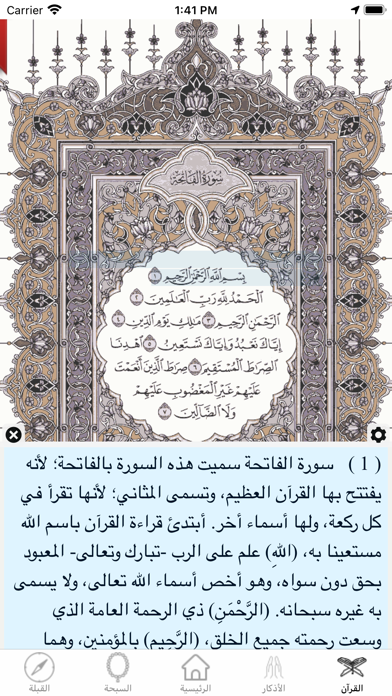 Carrier
1:41 PM
سورة الفاتحة
بِسْمِ ٱللَّهِ ٱلرَّحْمَٰنِ ٱلرَّحِيمِ ١
ٱلْحَمْدُ لِلَّهِ رَبِّ ٱلْعَٰلَمِينَ ٢
ٱلرَّحْمَٰنِ ٱلرَّحِيمِ ٣ مَٰلِكِ يَوْمِ ٱلدِّينِ ٤
إِيَّاكَ نَعْبُدُ وَإِيَّاكَ نَسْتَعِينُ ٥ ٱهْدِنَا
ٱلصِّرَٰطَ ٱلْمُسْتَقِيمَ ٦ صِرَٰطَ ٱلَّذِينَ أَنْعَمْتَ
عَلَيْهِمْ غَيْرِ ٱلْمَغْضُوبِ عَلَيْهِمْ
وَلَا ٱلضَّآلِّينَ ٧
( 1 ) سورة الفاتحة سميت هذه السورة بالفاتحة؛ لأنه
يفتتح بها القرآن العظيم، وتسمى المثاني؛ لأنها تقرأ في
كل ركعة، ولها أسماء أخر. أبتدئ قراءة القرآن باسم الله
مستعينا به، (اللهِ) علم على الرب -تبارك وتعالى- المعبود
بحق دون سواه، وهو أخص أسماء الله تعالى، ولا يسمى
به غيره سبحانه. (الرَّحْمَنِ) ذي الرحمة العامة الذي
وسعت رحمته جميع الخلق، (الرَّحِيمِ) بالمؤمنين، وهما
القرآن
الأذكار
الرئيسية
السبحة
القبلة